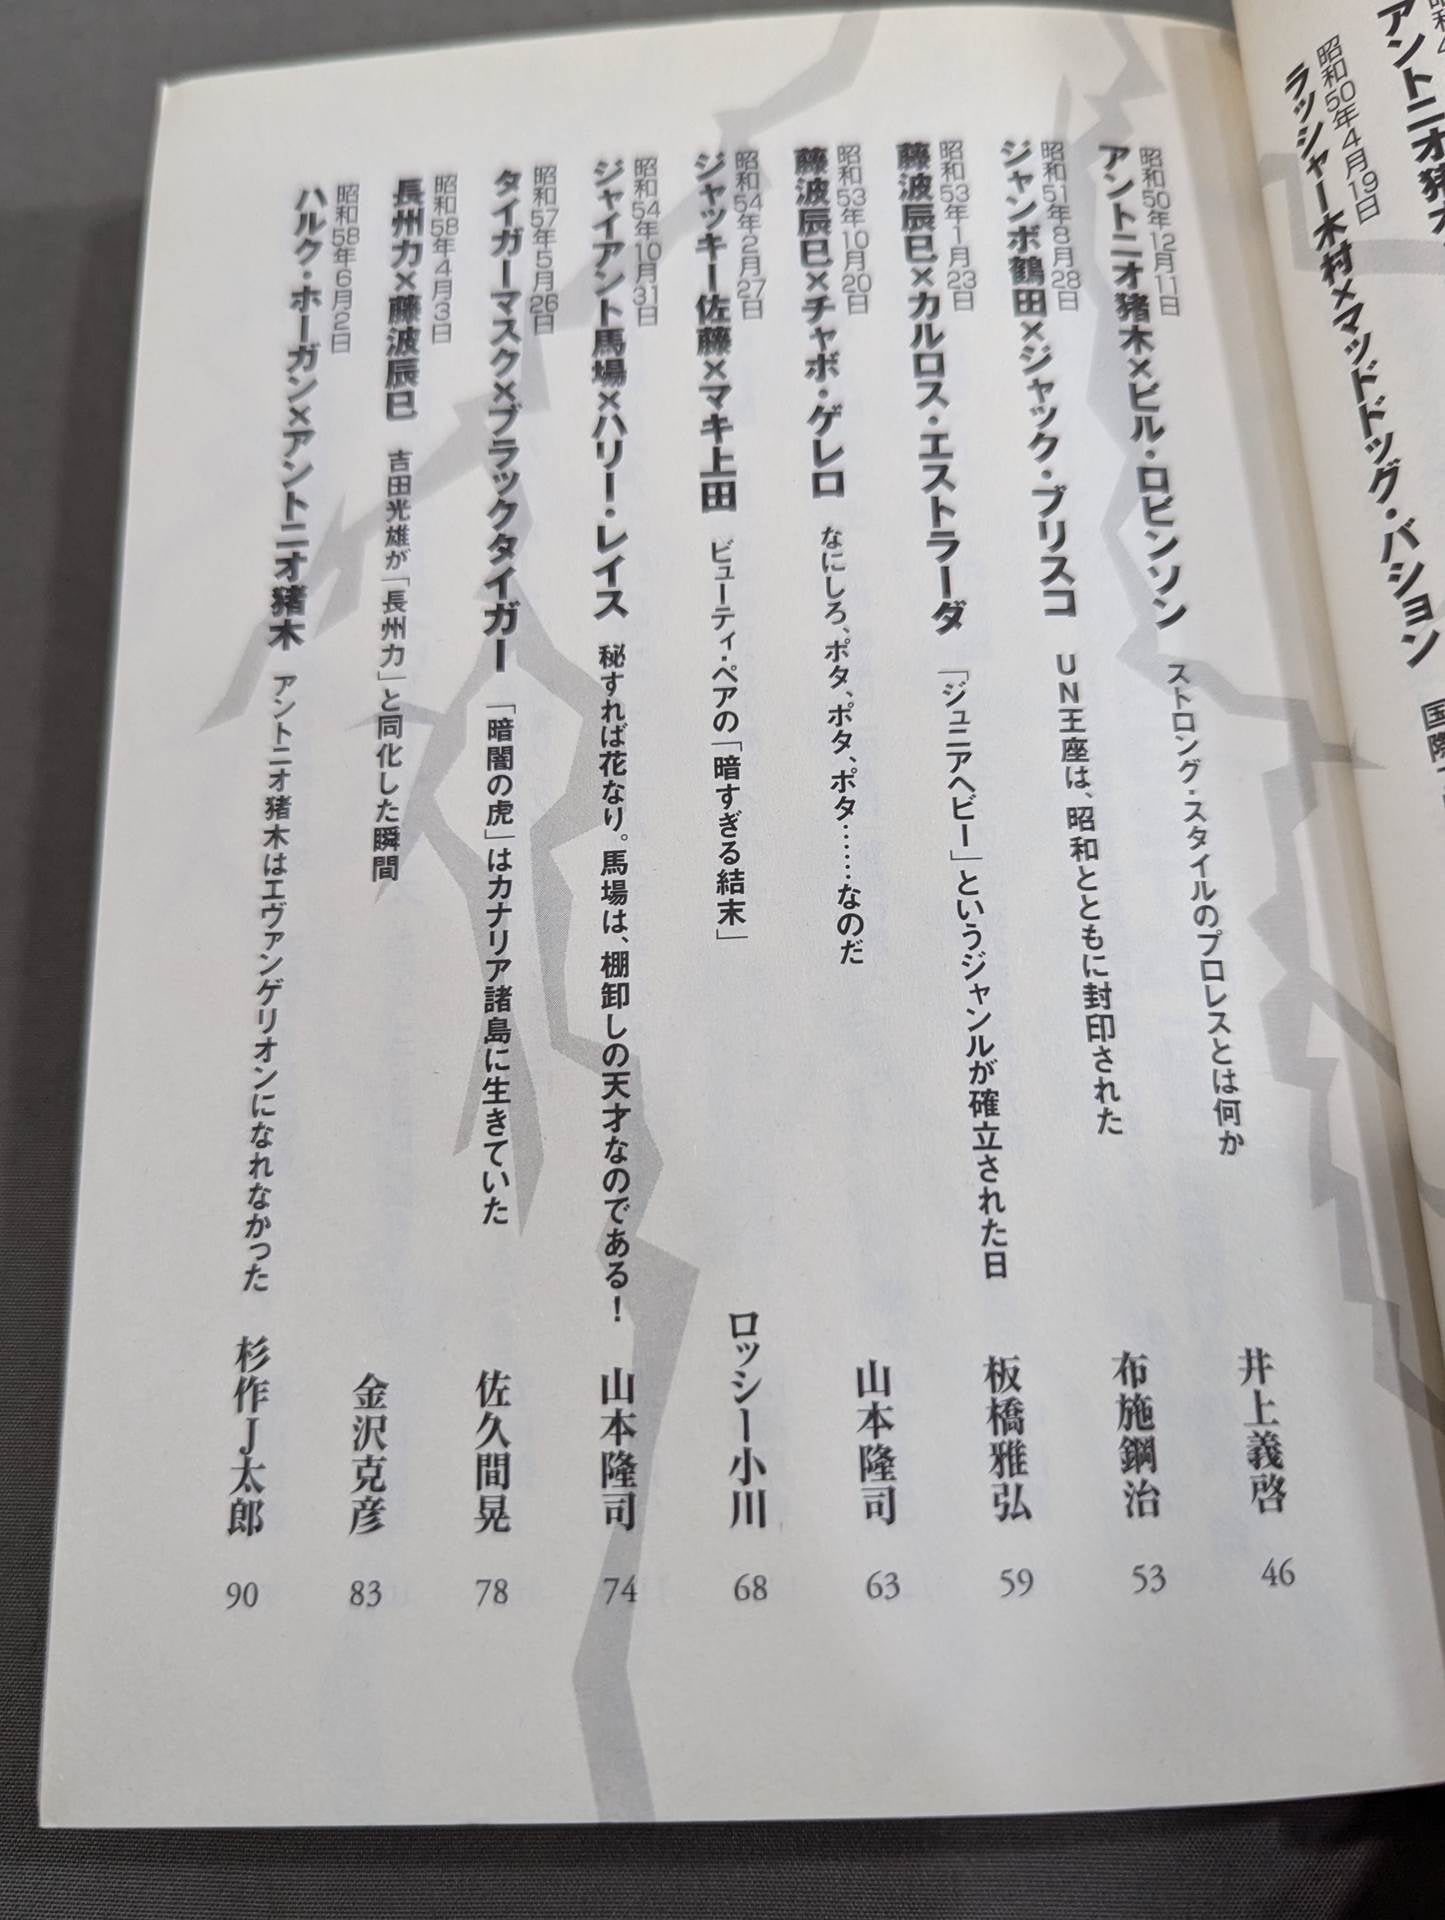 アントニオ猪
昭和50年4月19日
ラッシャー木村×マッドドッグ・バション
国際
昭和50年12月11日
アントニオ猪木×ビル・ロビンソン ストロング・スタイルのプロレスとは何か 井上義啓 46
昭和51年8月28日
ジャンボ鶴田×ジャック・ブリスコ UN王座は、昭和とともに封印された 布施鋼治 53
昭和53年1月23日
藤波辰巳×カルロス・エストラーダ 「ジュニアヘビー」というジャンルが確立された日 板橋雅弘 59
昭和53年10月20日
藤波辰巳×チャボ・ゲレロ なにしろ、ポタ、ポタ、ポタ……なのだ 山本隆司 63
昭和54年2月27日
ジャッキー佐藤×マキ上田 ビューティ・ペアの「暗すぎる結末」 ロッシー小川 68
昭和54年10月31日
ジャイアント馬場×ハリー・レイス 秘すれば花なり。馬場は、棚卸しの天才なのである! 山本隆司 74
昭和57年5月26日
タイガーマスク×ブラックタイガー 「暗闇の虎」はカナリア諸島に生きていた 佐久間晃 78
昭和58年4月3日
長州力×藤波辰巳 吉田光雄が「長州力」と同化した瞬間 金沢克彦 83
昭和58年6月2日
ハルク・ホーガン×アントニオ猪木 アントニオ猪木はエヴァンゲリオンになれなかった 杉作J太郎 90